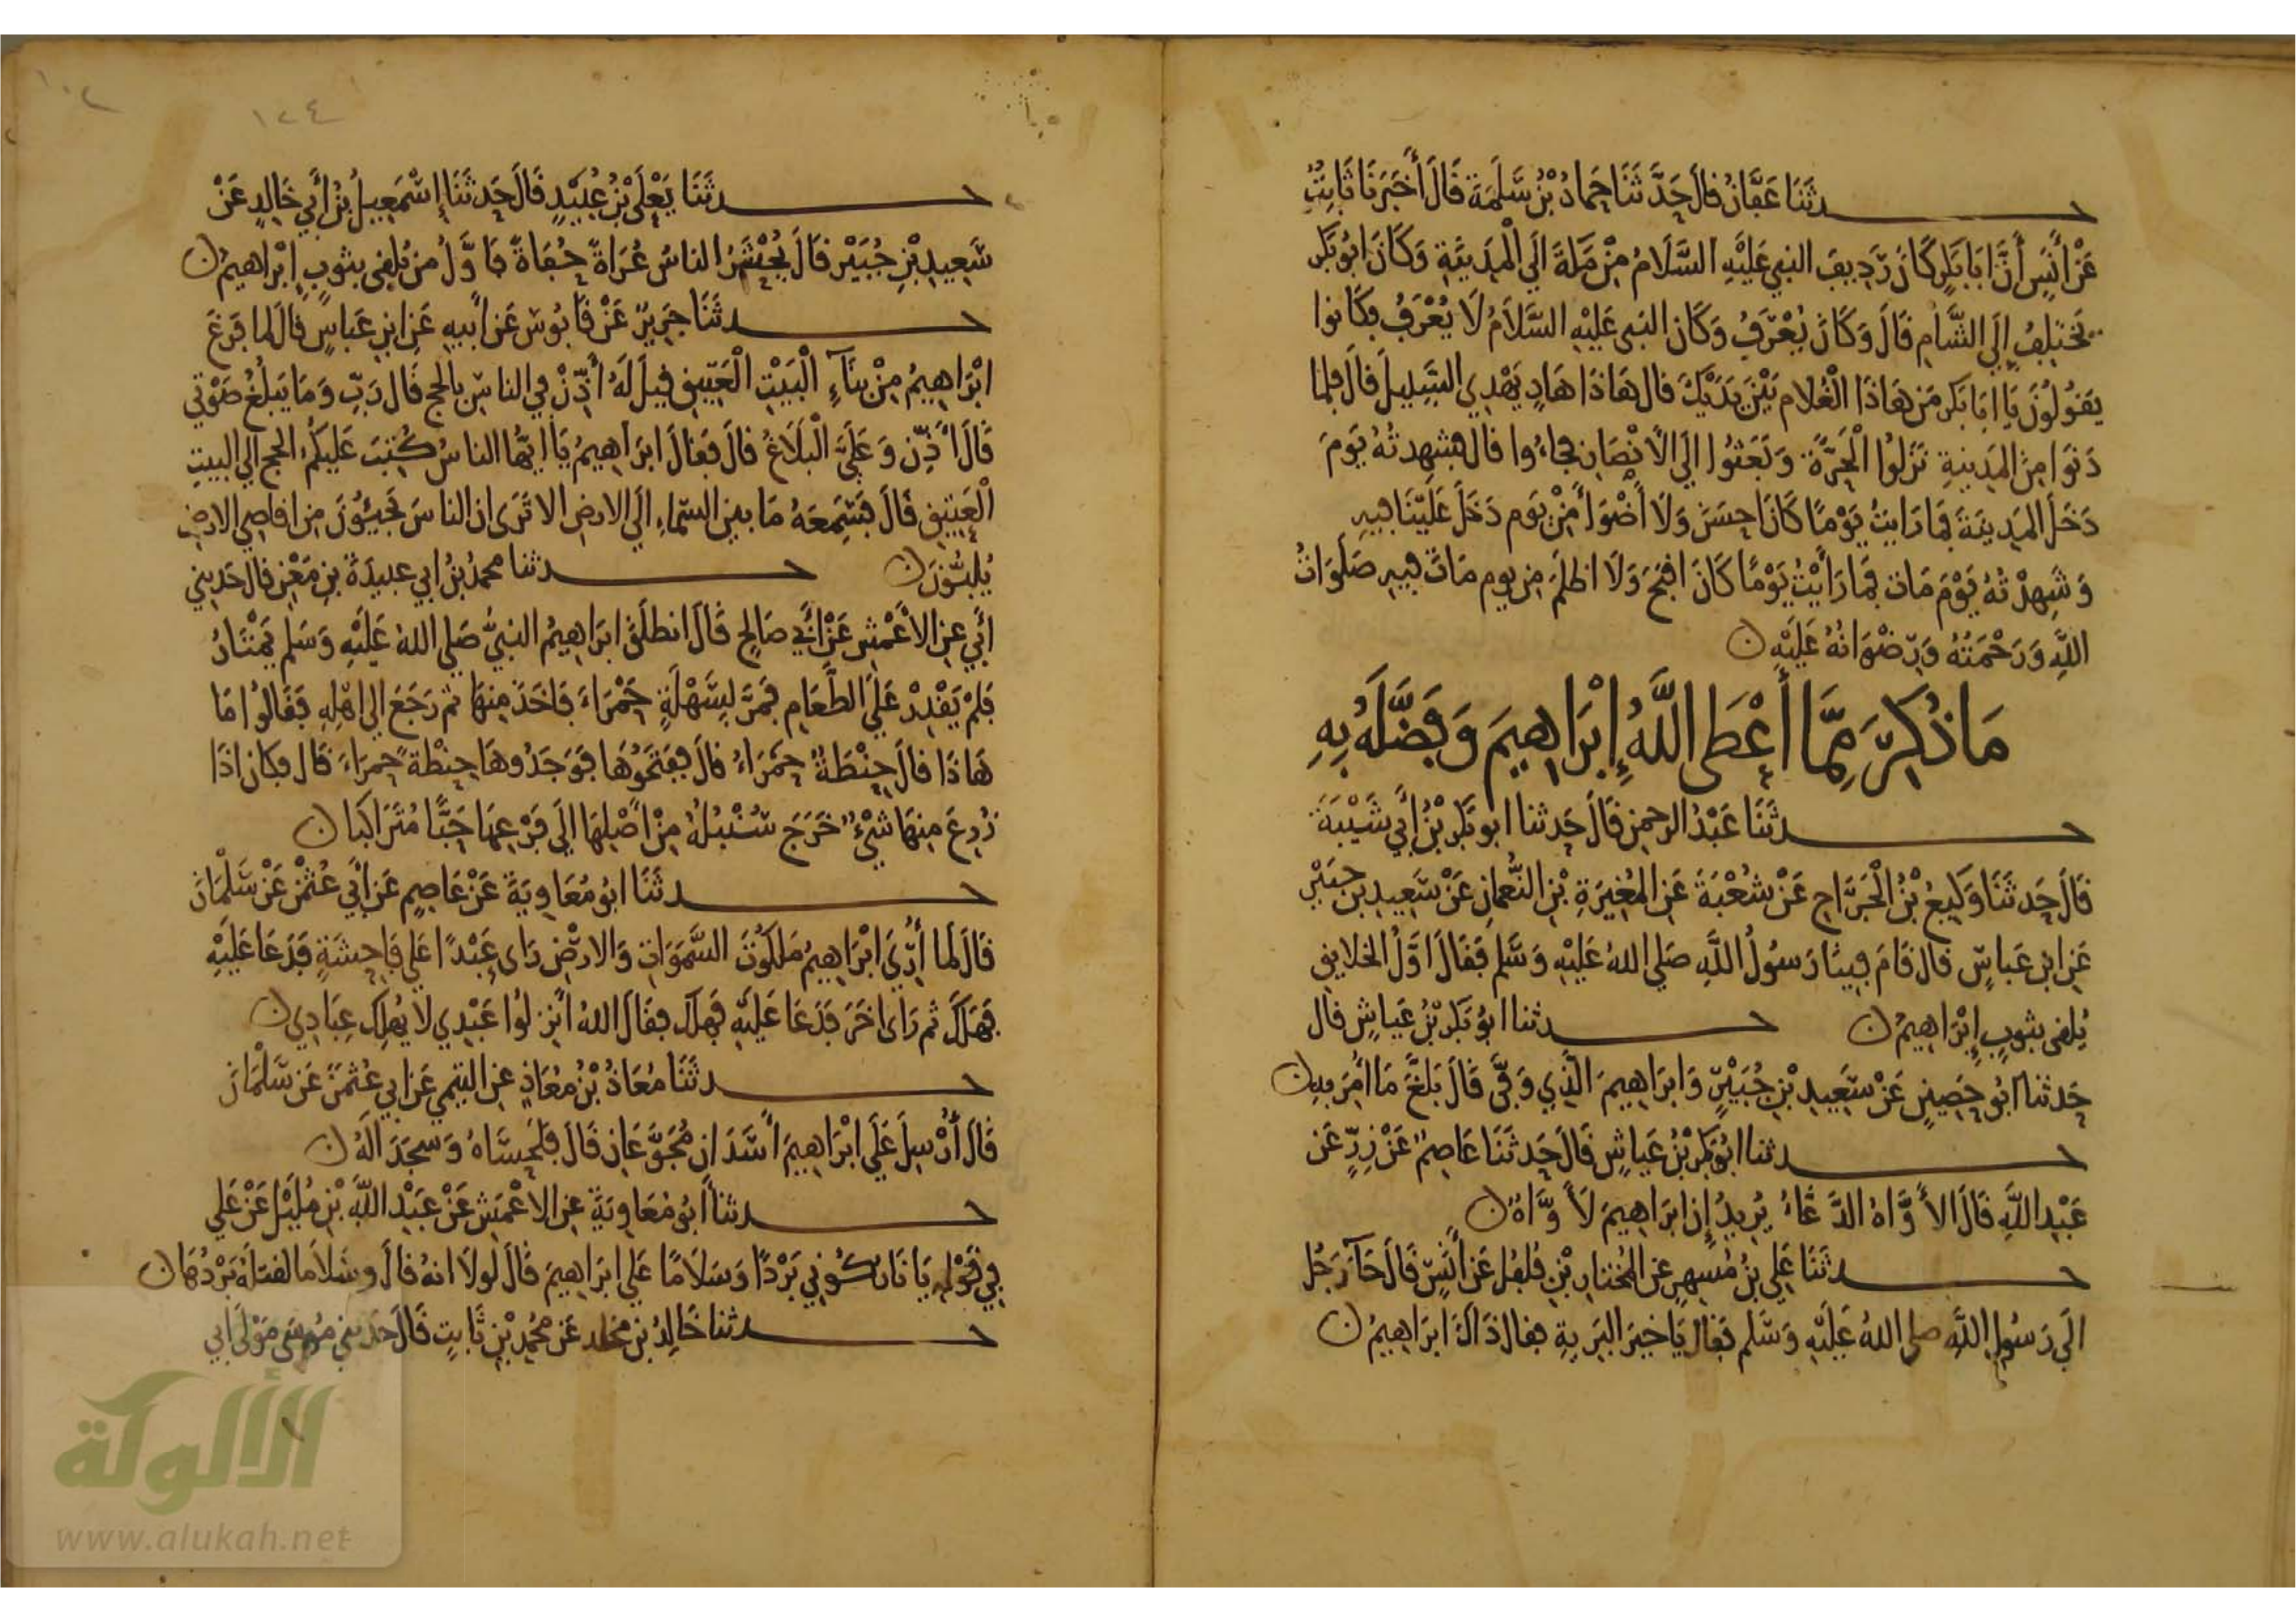 حدثنا عفان قال حدثنا حماد بن سلمة قال أخبرنا ثابت
عن أنس أن أبا بكر كان رديف النبي عليه السلام من مكة إلى المدينة وكان أبو بكر
يختلف إلى الشام قال وكان يعرف وكان النبي عليه السلام لا يعرف فكانوا
يقولون يا ابا بكر من هاذا الغلام بين يديك قال هاذا هاد يهدي السبيل قال فلما
دنوا من المدينة نزلوا الحرة وبعثوا إلى الأنصار فجاءوا قال فشهدته يوم
دخل المدينة فما رايت يوما كان احسن ولا أضوأ من يوم دخل علينا فيه
وشهدته يوم مات فما رأيت يوما كان اقبح ولا اظلم من يوم مات فيه صلوات
الله ورحمته ورضوانه عليه
مَا ذُكِرَ مِمَّا أَعْطَى اللَّهُ إِبْرَاهِيمَ وَفَضَّلَهُ بِهِ
حدثنا عبد الرحمن قال حدثنا ابو بكر بن أبي شيبة
قال حدثنا وكيع بن الجراح عن شعبة عن المغيرة بن النعمان عن سعيد بن جبير
عن ابن عباس قال قام فينا رسول الله صلى الله عليه وسلم فقال اول الخلايق
يلقى بثوب إبراهيم حدثنا ابو بكر بن عياش قال
حدثنا ابو حصين عن سعيد بن جبير وابراهيم الذي وفى قال بلغ ما أمر به
حدثنا ابو بكر بن عياش قال حدثنا عاصم عن زر عن
عبد الله قال الأواه الدعاء يريد إن ابراهيم لأواه
حدثنا علي بن مسهر عن المختار بن فلفل عن أنس قال جآ رجل
الى رسول الله صلى الله عليه وسلم فقال يا خير البرية فقال ذاك ابراهيم
١٠٢
١٢٤
حدثنا يعلى بن عبيد قال حدثنا إسمعيل بن أبي خالد عن
سعيد بن جبير قال يحشر الناس عراة حفاة فاول من يلقى بثوب إبراهيم
حدثنا جرير عن قابوس عن أبيه عن ابن عباس قال لما فرغ
ابراهيم من بنآء البيت العتيق قيل له أذن في الناس بالحج قال رب وما يبلغ صوتي
قال أذن وعلي البلاغ قال فقال ابراهيم يا ايها الناس كتب عليكم الحج الى البيت
العتيق قال فسمعه ما بين السماء الى الارض الا ترى ان الناس يجيئون من اقاصي الارض
يلبون حدثنا محمد بن ابي عبيدة بن معن قال حدثني
أبي عن الأعمش عن أبي صالح قال انطلق ابراهيم النبي صلى الله عليه وسلم يمتار
فلم يقدر على الطعام فمر بسهلة حمراء فاخذ منها ثم رجع الى اهله فقالوا ما
هاذا قال حنطة حمراء قال ففتحوها فوجدوها حنطة حمراء قال فكان اذا
زرع منها شيء خرج سنبله من أصلها الى فرعها حبا متراكبا
حدثنا ابو معاوية عن عاصم عن أبي عثمن عن سلمان
قال لما أري ابراهيم ملكوت السموات والارض راى عبدا على فاحشة فدعا عليه
فهلك ثم راى اخر فدعا عليه فهلك فقال الله انزلوا عبدي لا يهلك عبادي
حدثنا معاذ بن معاذ عن التيمي عن ابي عثمن عن سلمان
قال أرسل على ابراهيم أسدان مجوعان قال فلحساه وسجدا له
حدثنا أبو معاوية عن الاعمش عن عبد الله بن مليل عن علي
في قوله يا نار كوني بردا وسلاما على ابراهيم قال لولا انه قال وسلاما لقتله بردها
حدثنا خالد بن مخلد عن محمد بن ثابت قال حدثني موسى مولى ابي
الألوكة
www.alukah.net